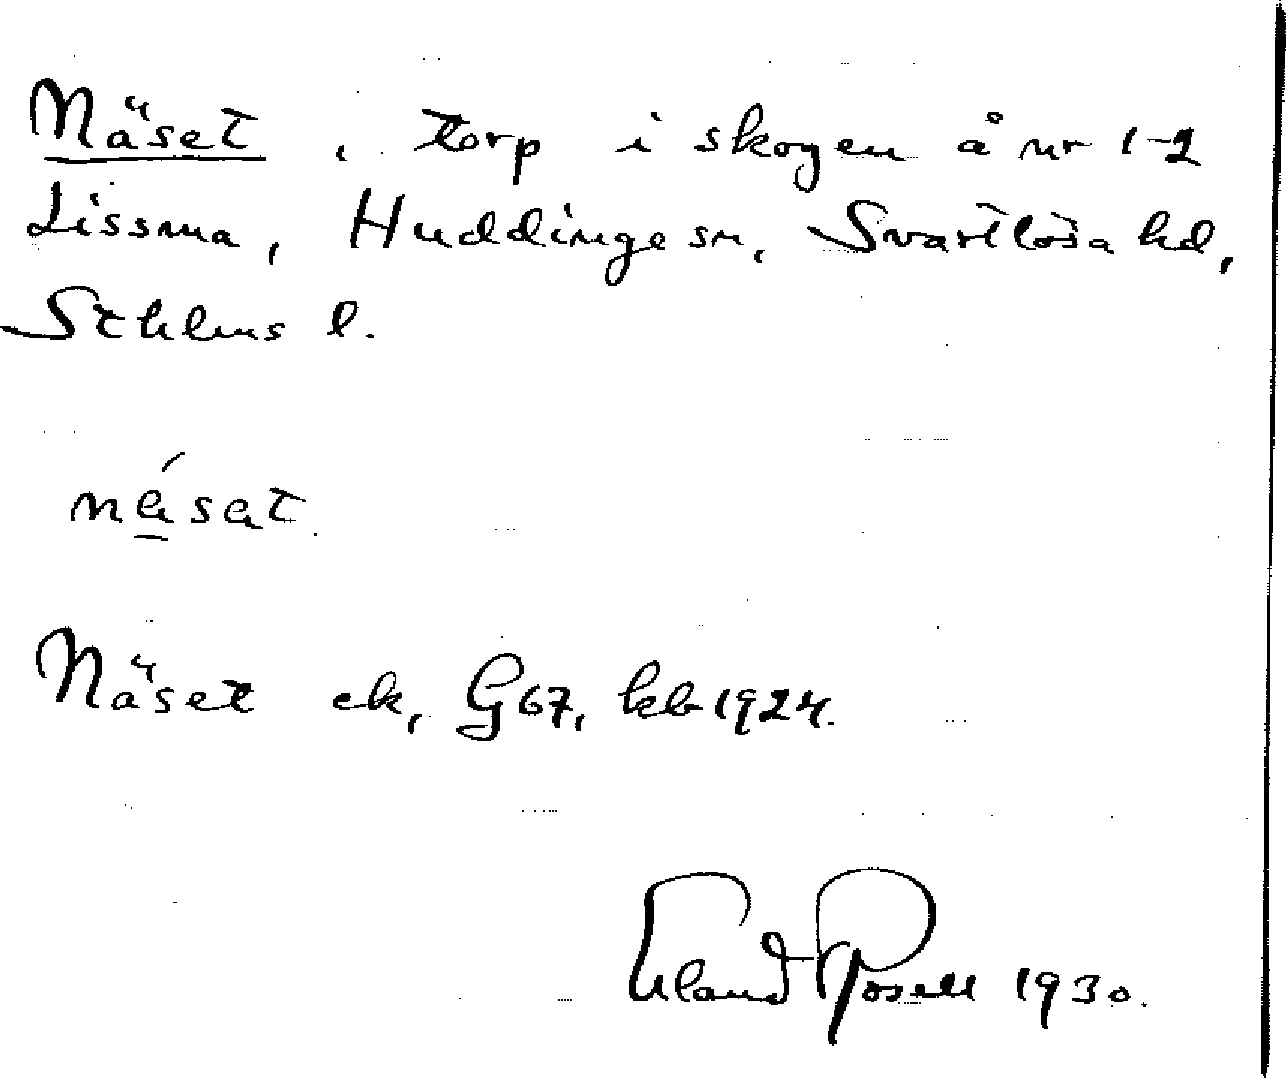 Näset, torp i skogen å nr 1-2
Lissma, Huddinge sn, Svartlösa hd,
Sthlms l.
násat.
Näset ek, G67, kb 1924.
Erland Rosell 1930.